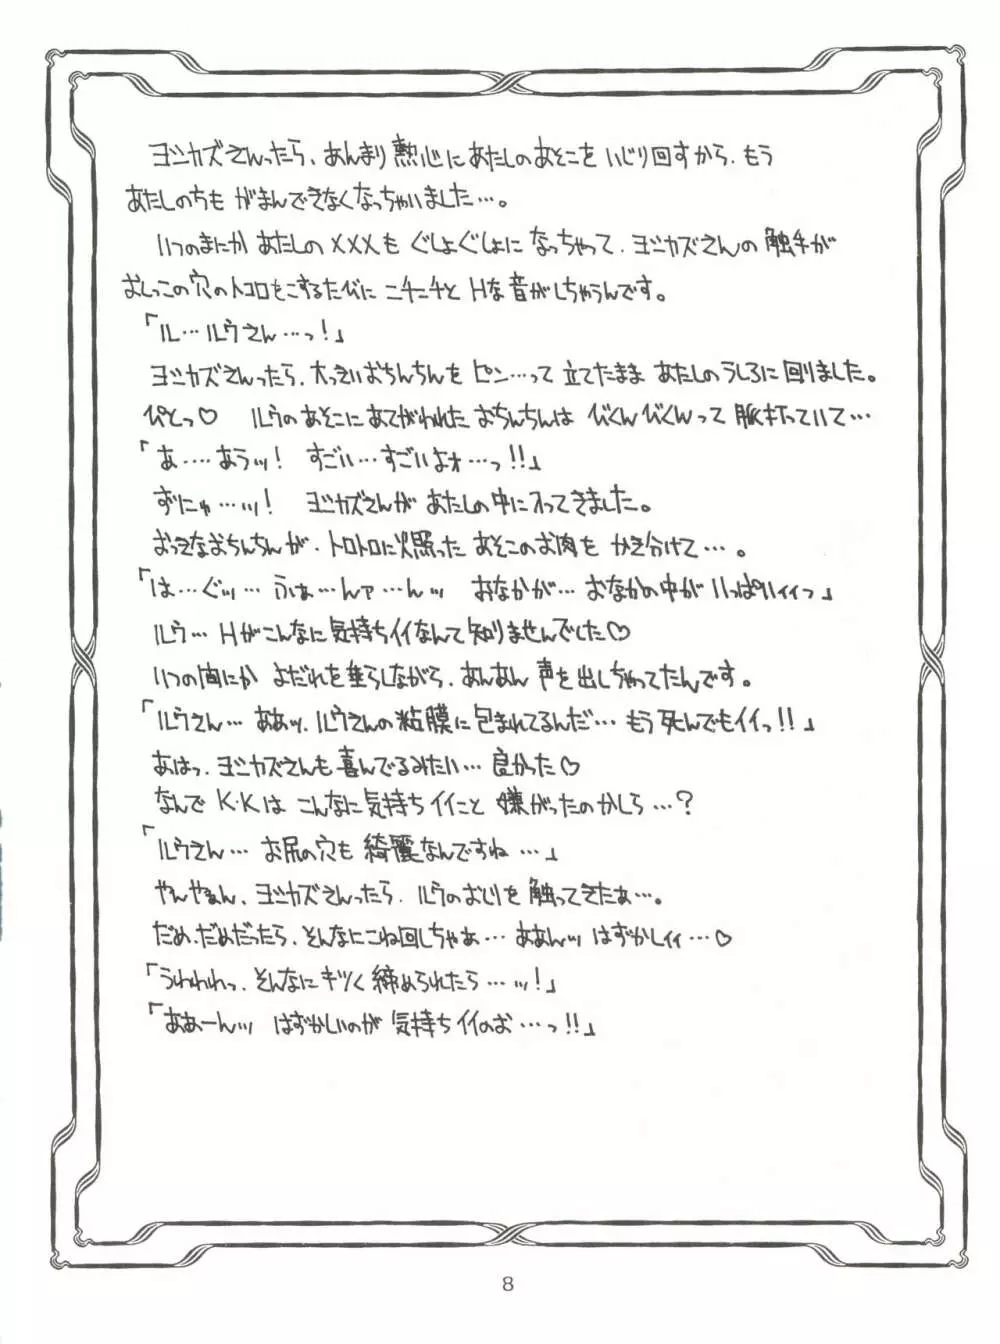 ヨシカズさんったら、あんまり熱心にあたしのあそこをいじり回すから、もう
あたしのちも がまんできなくなっちゃいました…。
いつのまにか あたしのXXXも ぐしょぐしょに なっちゃって、ヨシカズさんの 触手が
おしっこの穴のトコロをこするたびに ニチニチと Hな音がしちゃうんです。
「ル…ルウさん…っ!」
ヨシカズさんったら、大っきいおちんちんを ピン…って 立てたまま あたしのうしろに回りました。
ぴとっ♡ ルウのあそこにあてがわれた おちんちんは びくんびくんって 脈打っていて…
「あ……あうッ! すごい…すごいよォ…っ!!」
ずにゅ…ッ! ヨシカズさんが あたしの中に入ってきました。
おっきなおちんちんが、トロトロに火照った あそこのお肉を かき分けて…。
「は…ぐッ… ふぁ…んァ…んッ おなかが… おなかの中が いっぱいィィっ」
ルウ… Hがこんなに気持ちイイなんて知りませんでした♡
いつの間にか よだれを垂らしながら、あんあん 声を出しちゃってたんです。
「ルウさん… ああッ、ルウさんの粘膜に包まれてるんだ… もう死んでもイイっ!!」
あはっ、ヨシカズさんも喜んでるみたい… 良かった♡
なんで K・Kは こんなに気持ちイイこと 嫌がったのかしら…?
「ルウさん… お尻の穴も 綺麗なんですね…」
やんやぁん、ヨシカズさんったら、ルウのおしりを 触ってきたぁ…。
だめ、だめだったら、そんなにこね回しちゃぁ… ああんッ はずかしィィ…♡
「うわわわっ、そんなにキツく 締められたら…ッ!」
「ああーんッ はずかしいのが 気持ちイイのぉ…っ!!」
8